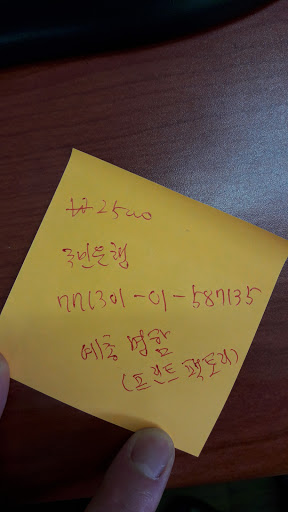 ₩25000
국민은행
771301-01-587135
예홍 명함
(프린트 팩토리)